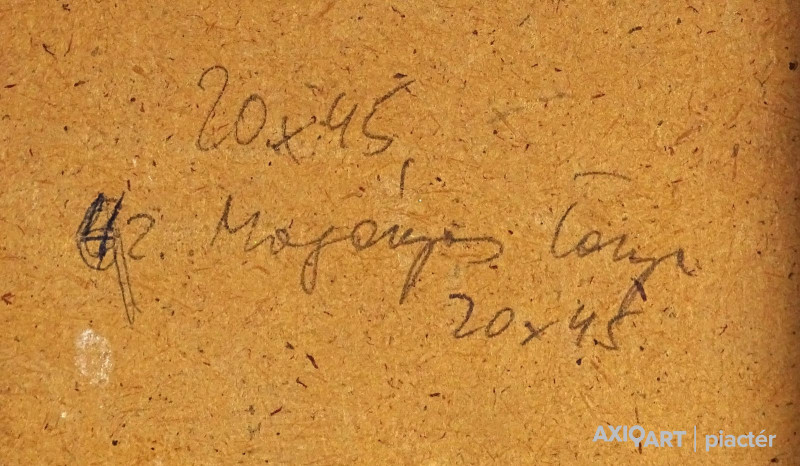 20x45
42 Magányos Tanya
20x45
AXIOART | piactér